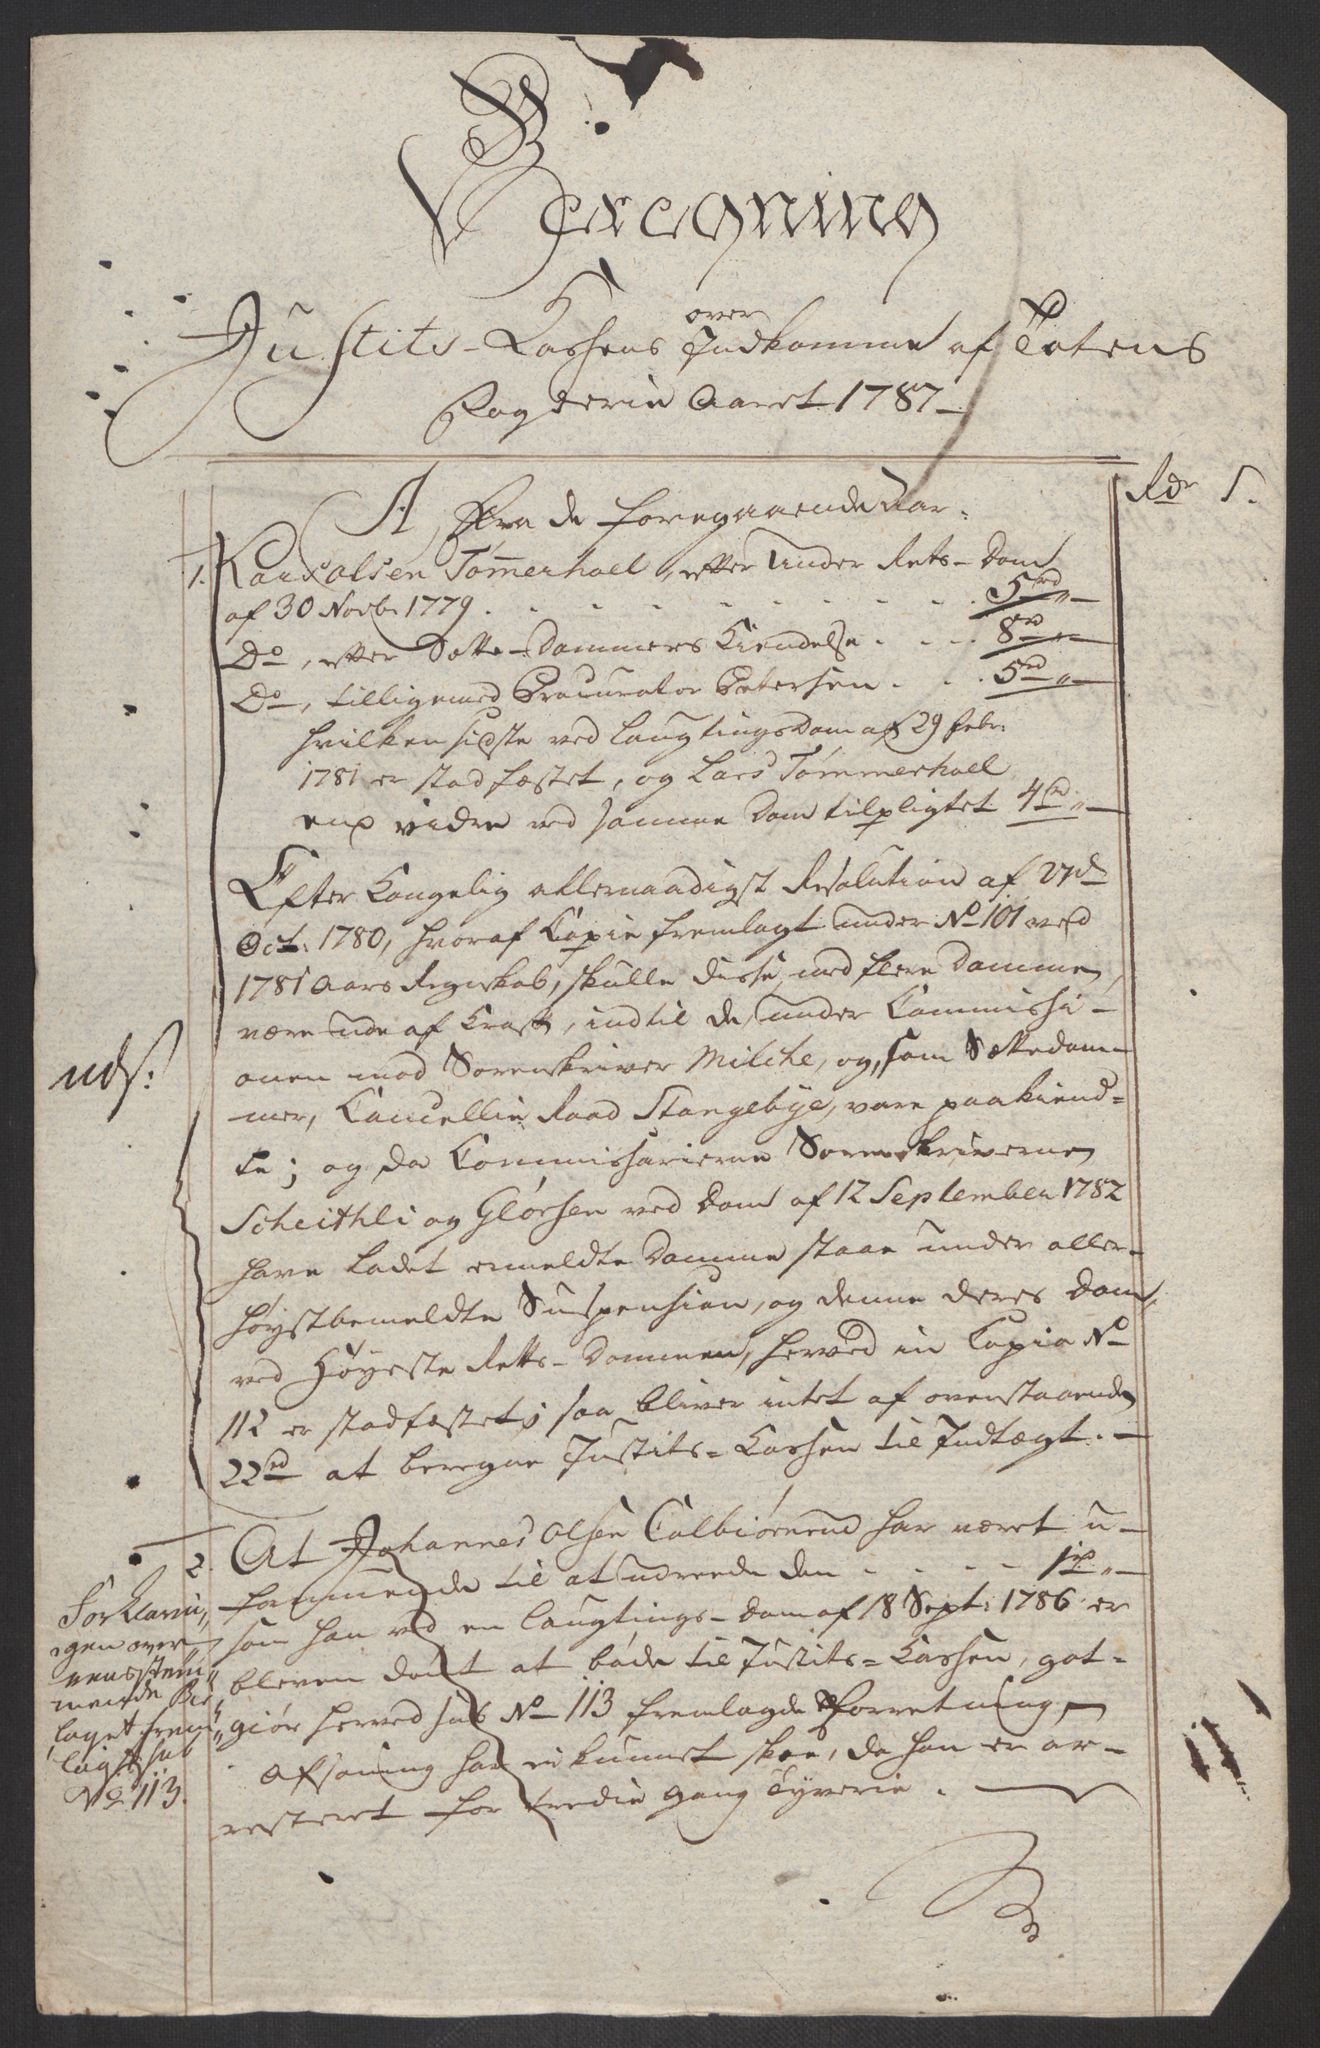 Beregning
over
Justits-Cassens Indkomme af Totens
Fogderie Aaret 1787
Rdr S.
A, Fra de foregaaende Aar.
1. Lars Olsen Tømmerhoel, efter Under Rets-Dom
af 30 Novbr. 1779 . . . . . 5 rd „
Do, efter Sætte-Dommers Kiendelse . . . 8 rd „
Do, tilligemed Procurator Petersen . . . 5 rd „
hvilken sidste ved Laugtings Dom af 29 Febr.
1781 er stadfæstet, og Lars Tømmerhoel
end videre ved samme Dom tilpligtet 4 rd „
Efter Kongelig allernaadigst Resolution af 27de
Oct. 1780, hvoraf Copie fremlagt under No 101 ved
1781 Aars Regnskab, skulle disse med flere Domme,
være ude af Kraft, indtil de, under Commissi-
onen mod Sorenskriver Milche, og, som Sættedom-
mer, Cancellie Raad Stangebye, vare paakiend-
te; og da Commissarierne Sorenskriverne
Scheithli og Glørsen ved Dom af 12 September 1782
have ladet ermeldte Domme staae under aller-
høystbemeldte Suspension, og denne deres Dom,
ved Høyeste Retts-Dommen, herved in Copia No
112 er stadfæstet; saa bliver intet af ovenstaaende
22 rd at beregne Justits-Cassen til Indtægt.
uds:
2. At Johannes Olsen Colbiørnrud har været u-
formuende til at udreede den . . . . 1 rd „
som han ved en Laugtings-Dom af 18 Sept: 1786 er
bleven dømt at bøde til Justits-Cassen, got-
giør herved sub No 113 fremlagde Forretning,
Afsoning har ei kunnet skee, da han er ar-
resteret for tredie gang Tyverie.
Forklarin-
gen over-
eensstem-
mende Bi-
laget frem-
lagt sub
No 113.